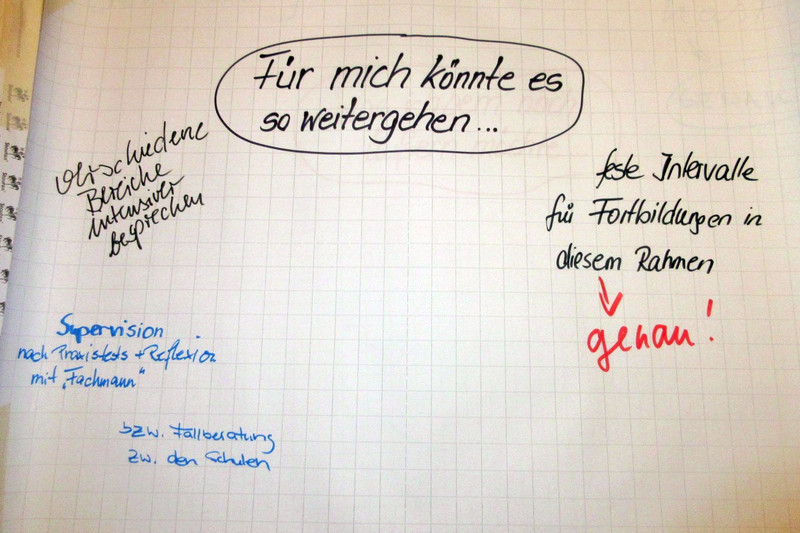 Für mich könnte es
so weitergehen...
verschiedene
Bereiche
intensiver
besprechen
feste Intervalle
für Fortbildungen in
diesem Rahmen
genau!
Supervision
nach Praxistests + Reflexion
mit „Fachmann“
bzw. Fallberatung
zw. den Schulen